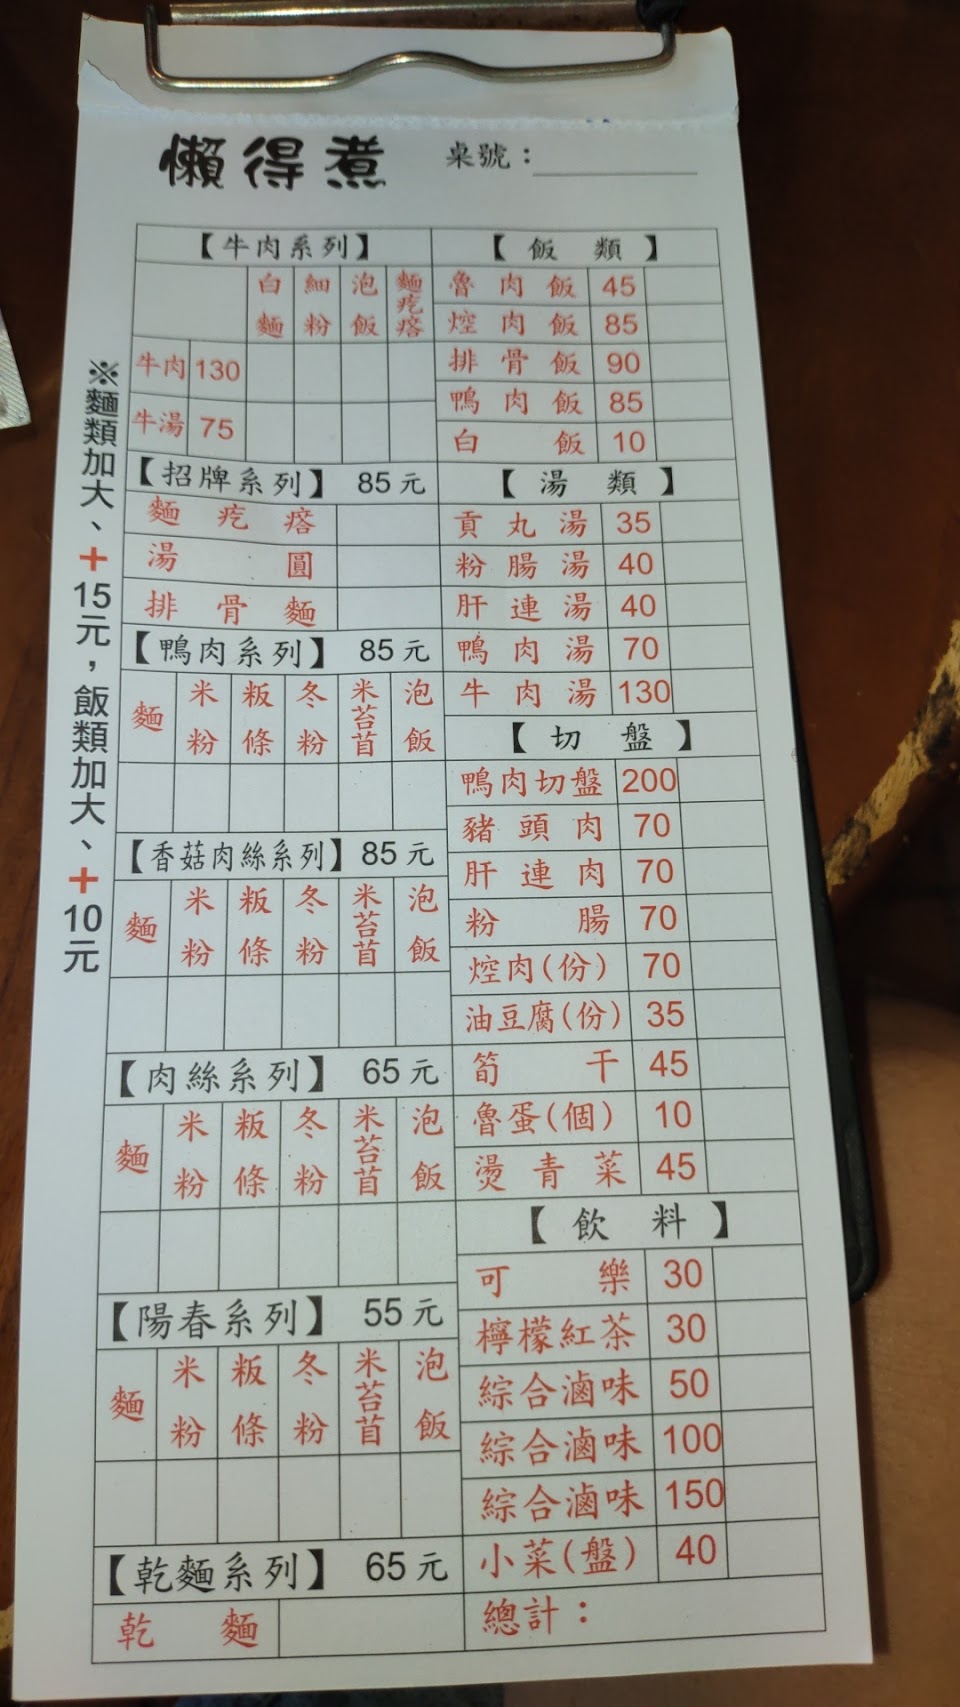 懶得煮
桌號：
※麵類加大、＋15元，飯類加大、＋10元
【牛肉系列】
白麵 細粉 泡飯 麵疙瘩
牛肉 130
牛湯 75
【招牌系列】 85元
麵疙瘩
湯圓
排骨麵
【鴨肉系列】 85元
麵 米粉 粄條 冬粉 米苔苜 泡飯
【香菇肉絲系列】85元
麵 米粉 粄條 冬粉 米苔苜 泡飯
【肉絲系列】 65元
麵 米粉 粄條 冬粉 米苔苜 泡飯
【陽春系列】 55元
麵 米粉 粄條 冬粉 米苔苜 泡飯
【乾麵系列】 65元
乾麵
【飯類】
魯肉飯 45
焢肉飯 85
排骨飯 90
鴨肉飯 85
白飯 10
【湯類】
貢丸湯 35
粉腸湯 40
肝連湯 40
鴨肉湯 70
牛肉湯 130
【切盤】
鴨肉切盤 200
豬頭肉 70
肝連肉 70
粉腸 70
焢肉(份) 70
油豆腐(份) 35
筍干 45
魯蛋(個) 10
燙青菜 45
【飲料】
可樂 30
檸檬紅茶 30
綜合滷味 50
綜合滷味 100
綜合滷味 150
小菜(盤) 40
總計：